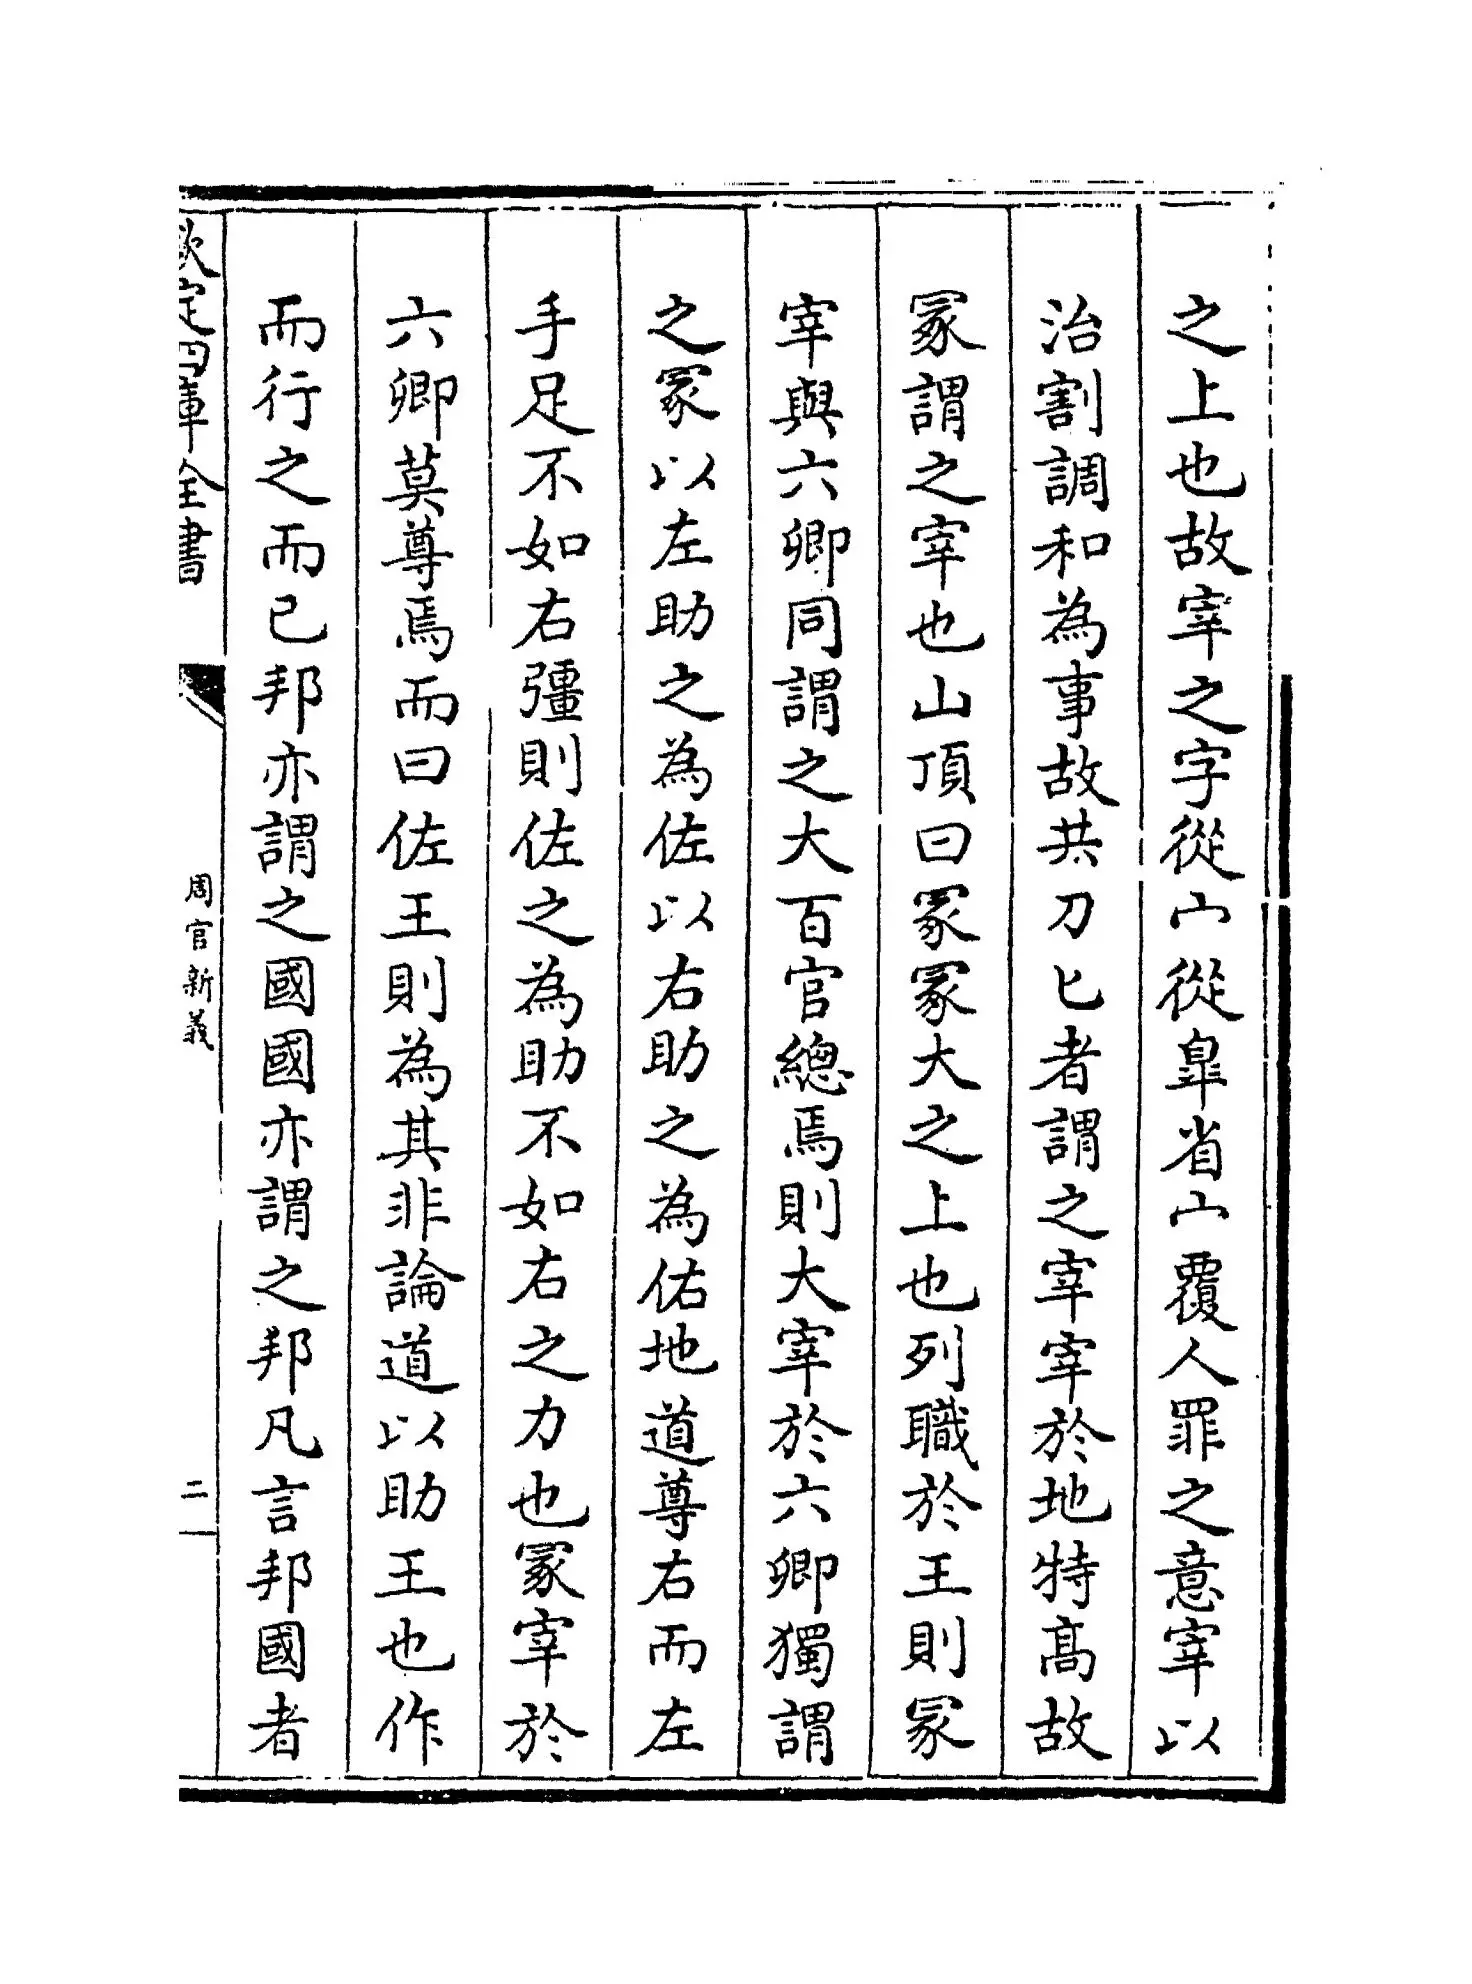 之上也故宰之字從宀從辠省宀覆人罪之意宰以
治割調和為事故共刀匕者謂之宰宰於地特高故
冢謂之宰也山頂曰冢冢大之上也列職於王則冢
宰與六卿同謂之大百官總焉則大宰於六卿獨謂
之冢以左助之為佐以右助之為佑地道尊右而左
手足不如右彊則佐之為助不如右之力也冢宰於
六卿莫尊焉而曰佐王則為其非論道以助王也作
而行之而已邦亦謂之國國亦謂之邦凡言邦國者
欽定四庫全書
周官新義
二